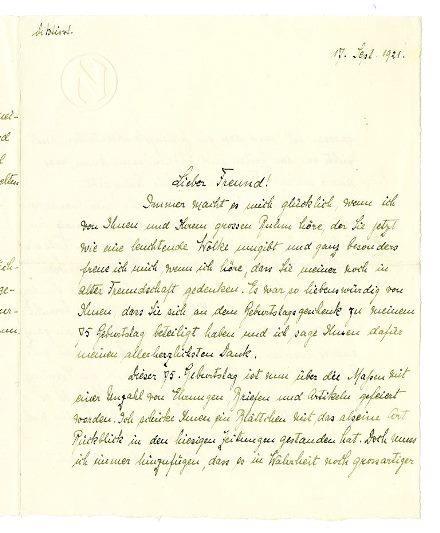 17. Sept. 1921.
Lieber Freund!
Immer macht es mich glücklich wenn ich
von Ihnen und Ihrem grossen Ruhm höre, der Sie jetzt
wie eine leuchtende Wolke umgibt und ganz besonders
freue ich mich wenn ich höre, dass Sie meiner noch in
alter Freundschaft gedenken. Es war so liebenswürdig von
Ihnen dass Sie sich an dem Geburtstagsgeschenk zu meinem
75 Geburtstag beteiligt haben und ich sage Ihnen dafür
meinen allerherzlichsten Dank.
Dieser 75. Geburtstag ist nun über die Massen mit
einer Unzahl von Ehrungen Briefen und Artikeln gefeiert
worden. Ich schicke Ihnen ein Blättchen mit das als eine Art
Rückblick in den hiesigen Zeitungen gestanden hat. Doch muss
ich immer hinzufügen, dass es in Wahrheit noch grossartiger